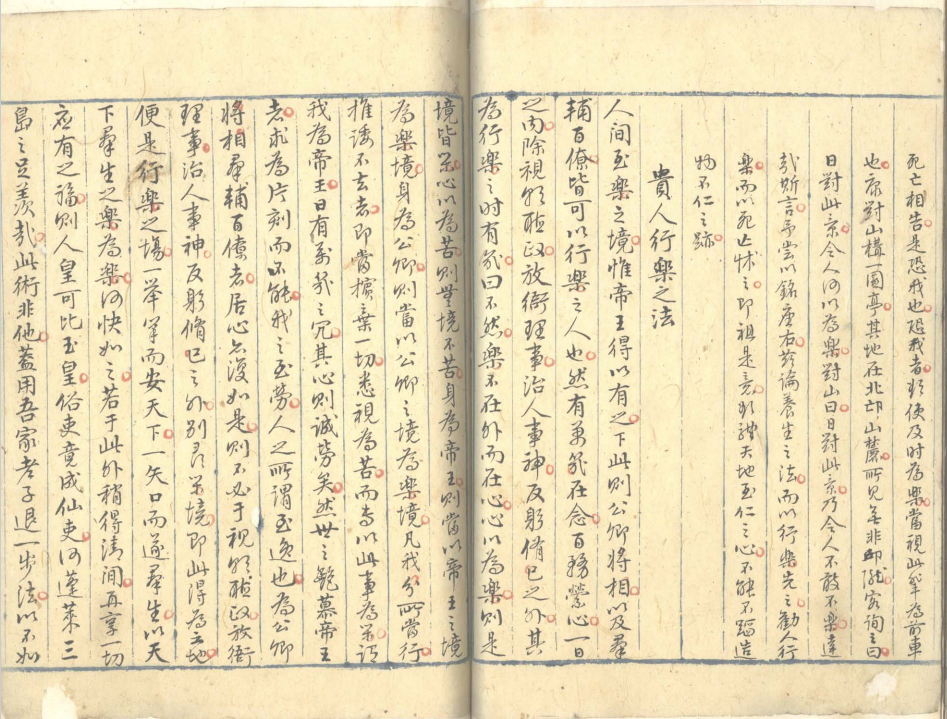 死亡相告是恐我也恐我者欲使及时為樂當視此輩為前車
也康對山構一園亭其地在北邙山麓所見無非邱隴客詢之曰
日對此景令人何以為樂對山曰日對此景乃令人不敢不樂達
哉斯言予嘗以銘座右玆論養生之法而以行樂先之勸人行
樂而以死亡怵之即祖是意欲體天地至仁之心不能不蹈造
物不仁之跡
貴人行樂之法
人间至樂之境惟帝王得以有之下此則公卿将相以及羣
輔百僚皆可以行樂之人也然有萬幾在念百務縈心一日
之内除視朝聴政放衙理事治人事神反躬脩已之外其
為行樂之时有幾曰不然樂不在外而在心心以為樂則是
境皆樂心以為苦則無境不苦身為帝王則當以帝王之境
為樂境身為公卿則當以公卿之境為樂境凡我分所當行
推诿不去者即當擯棄一切悉視為苦而専以此事為樂謂
我為帝王日有萬幾之冗其心則诚劳矣然世之艶慕帝王
者求為片刻而不能我之至劳人之所謂至逸也為公卿
将相羣輔百僚者居心亦復如是則不必于視朝聴政放衙
理事治人事神反躬脩已之外别尋樂境即此得為之地
便是行樂之場一举筆而安天下一矢口而遂羣生以天
下羣生之樂為樂何快如之若于此外稍得清间再享一切
應有之福則人皇可比玉皇俗吏竟成仙吏何蓬萊三
島之足羨哉此術非他蓋用吾家老子退一步法以不如